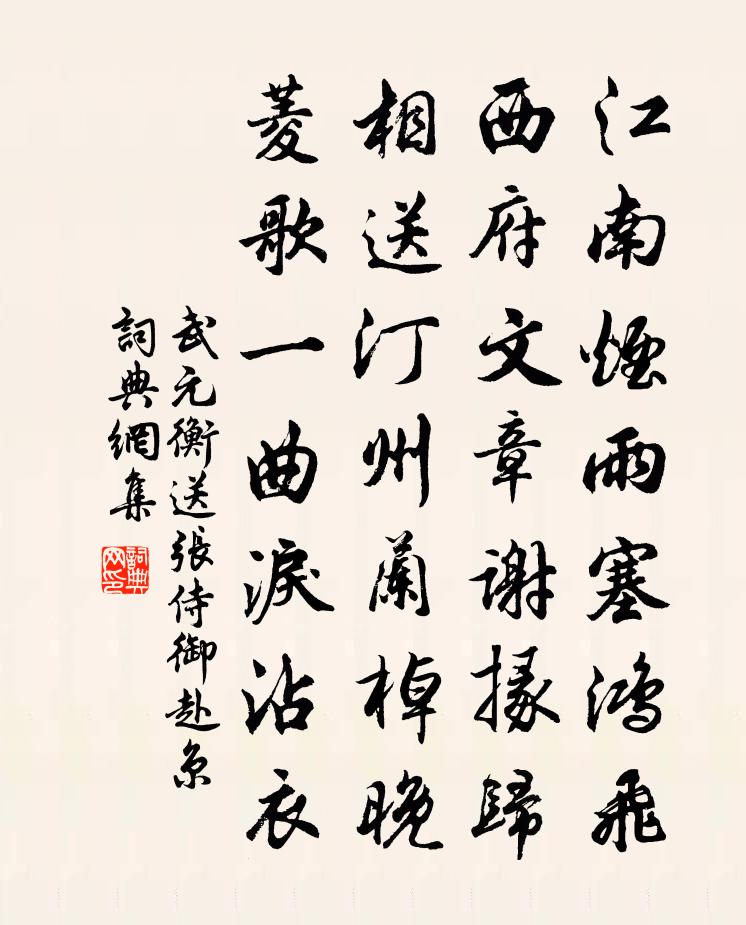 江南煙雨塞鴻飛
西府文章謝掾歸
相送汀州蘭棹晚
菱歌一曲淚沾衣
武元衡送張侍御赴京
詞典網集
詞典网印